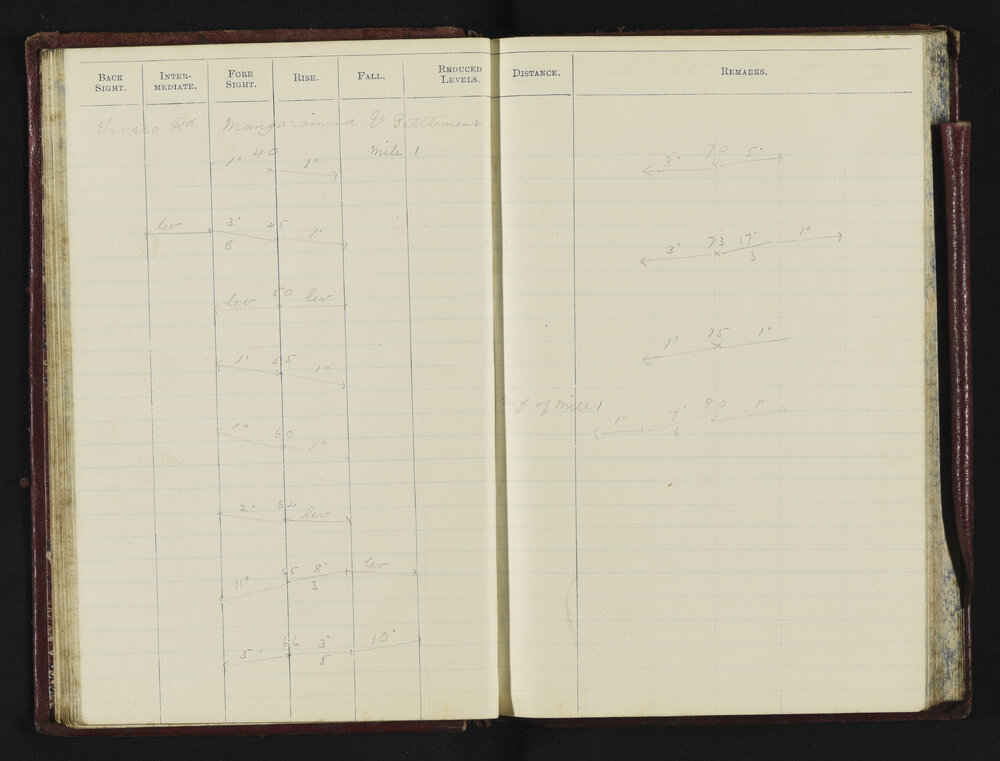 BACK SIGHT. INTER- MEDIATE. FORE SIGHT. RISE. FALL. REDUCED LEVELS.
Rd. V. Settlement
1° 40 1° Mile 1
lev 3° 45 1°
8
lev 50 lev
1° 55 1°
1° 60 1°
2° 64 lev
11° 65 8° lev
3
5° 66 3° 10°
5
DISTANCE. REMARKS.
3° 70 5°
3° 73 17° 1°
3
1° 75 1°
of Mile 1
1° 7° 80 1°
6